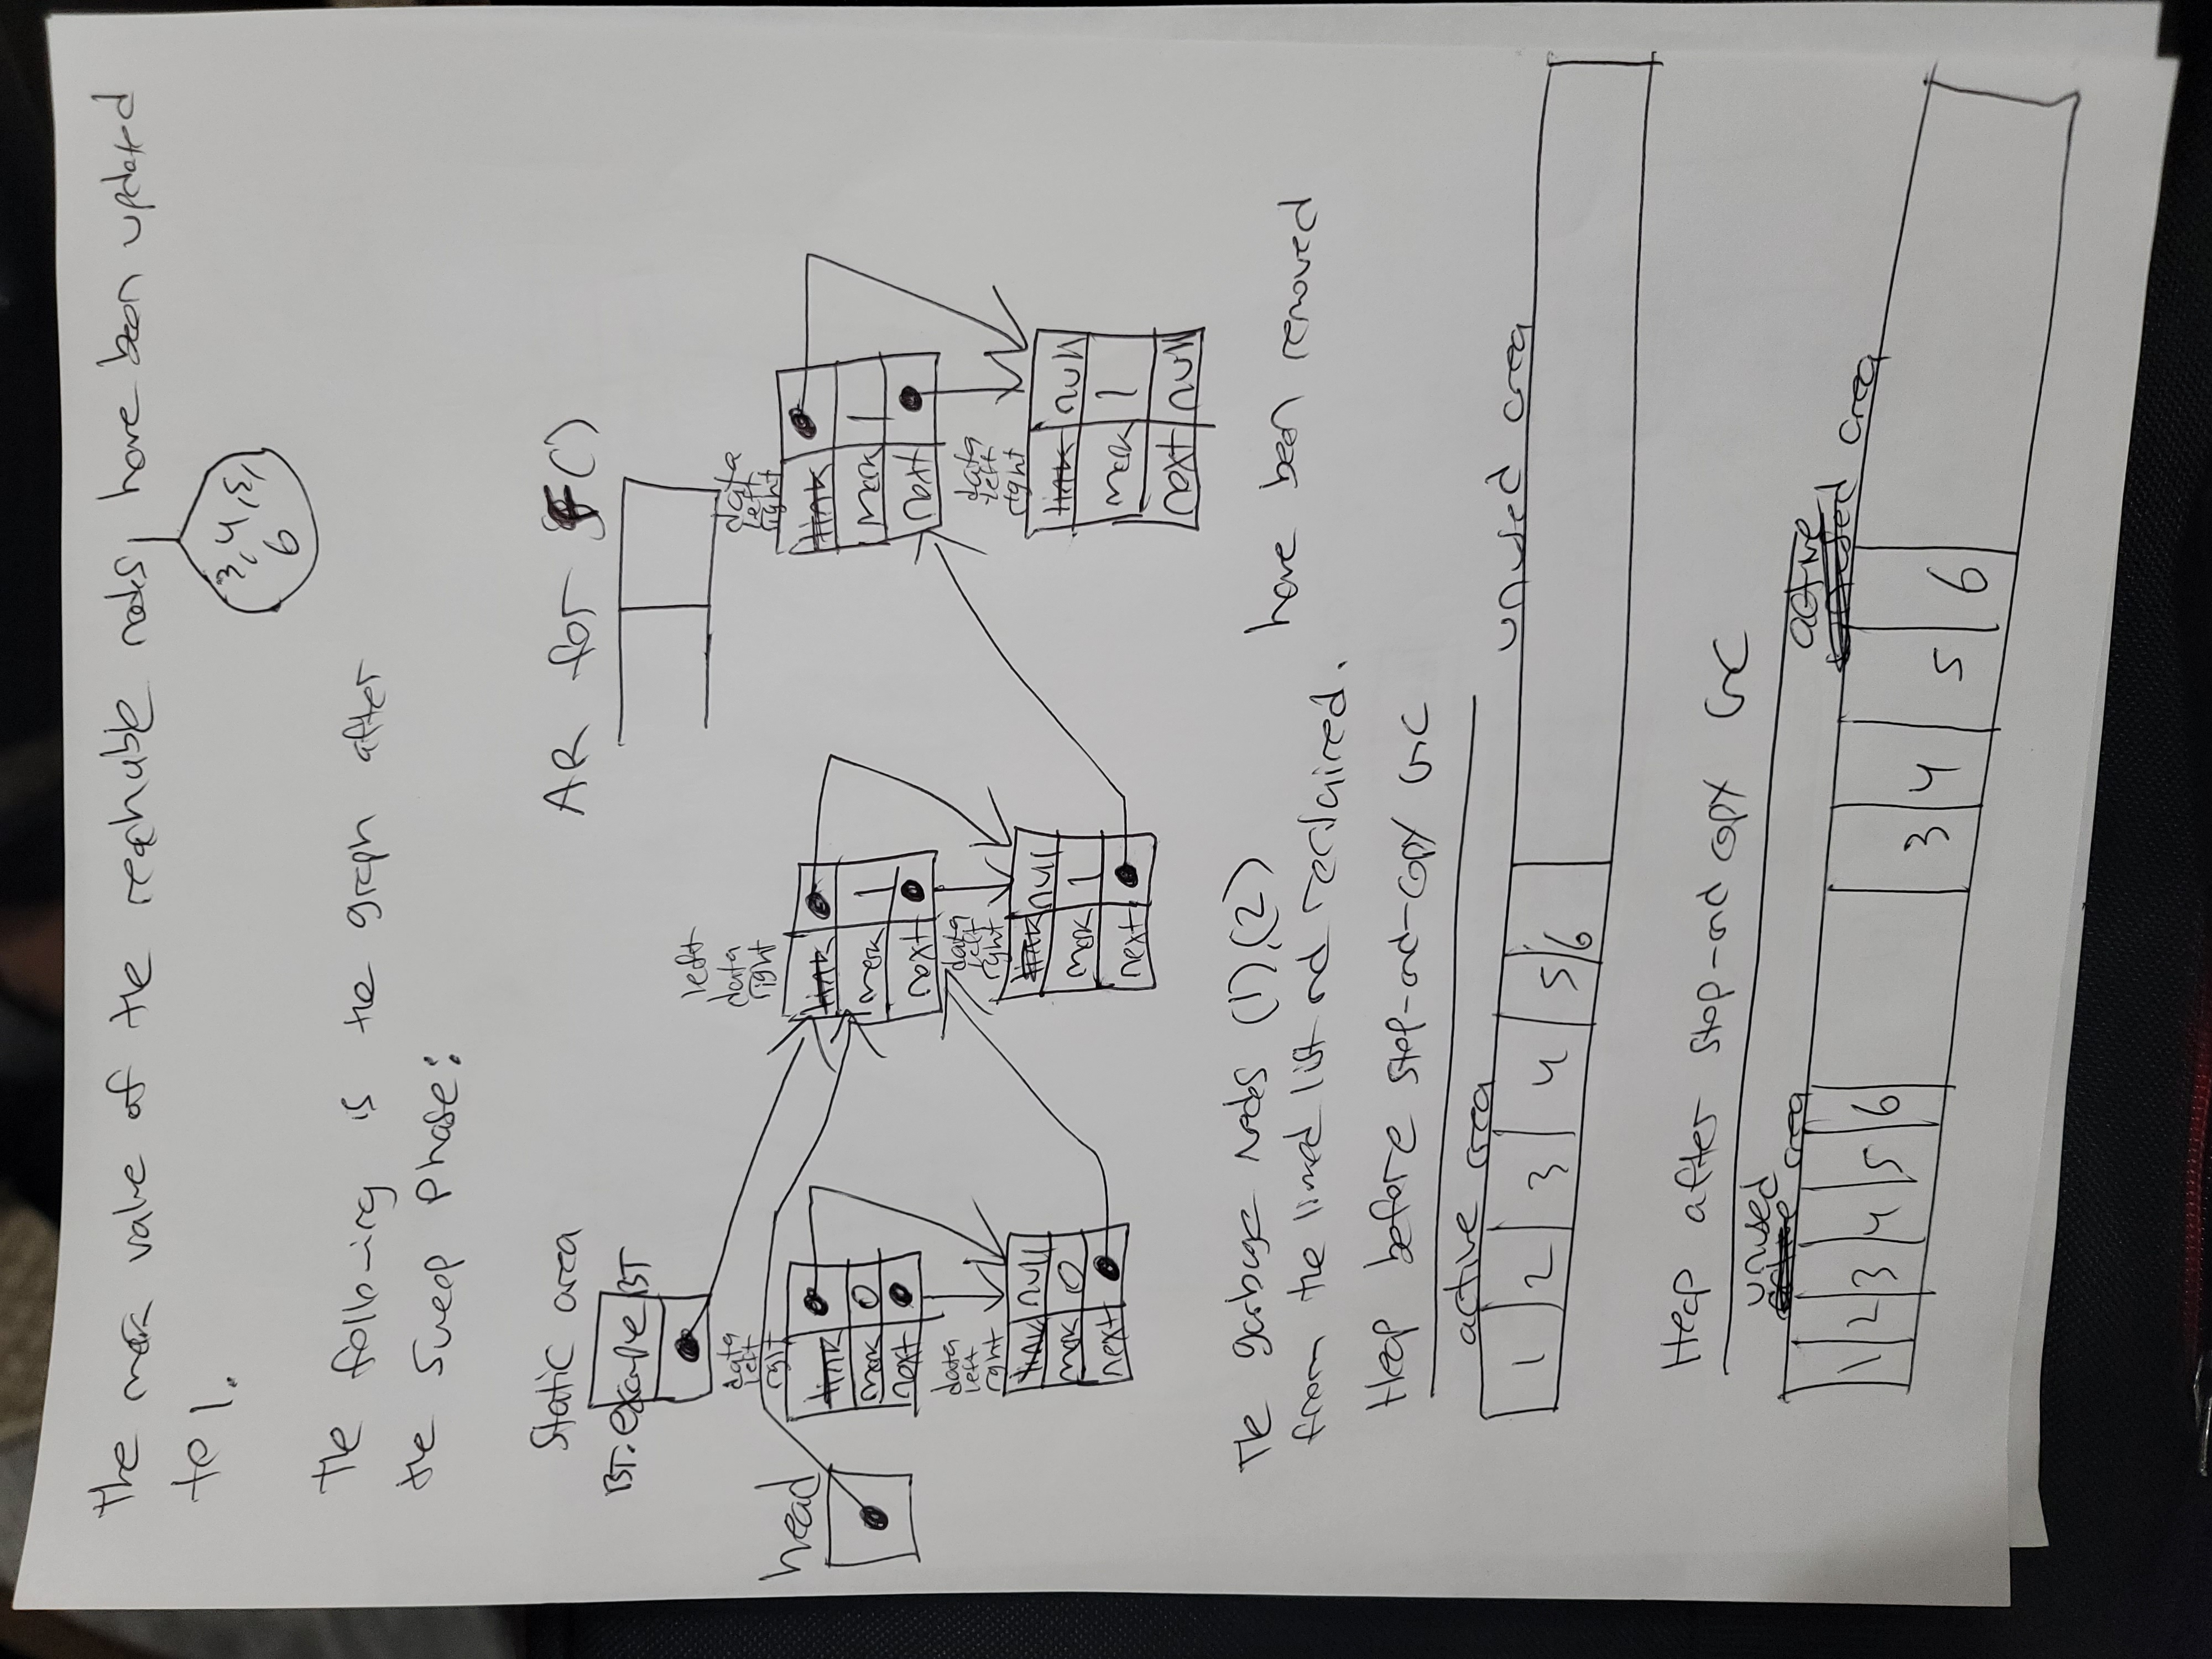 The mark value of the reachable nodes, have been updated
to 1.
3, 4, 5,
6
The following is the graph after
the Sweep Phase:
Static area
BT. example BT
AR for f()
head
data
left
right
link
mark 0
next
data
left
right
link null
mark 0
next
left
data
right
link
mark 1
next
data
left
right
link null
mark 1
next
data
left
right
link
mark 1
next
data
left
right
link null
mark 1
next null
The garbage nodes (1), (2) have been removed
from the linked list and reclaimed.
Heap before stop-and-copy GC
active area unused area
1 2 3 4 5 6
Heap after stop-and copy GC
unused active
active area unused area
1 2 3 4 5 6 3 4 5 6